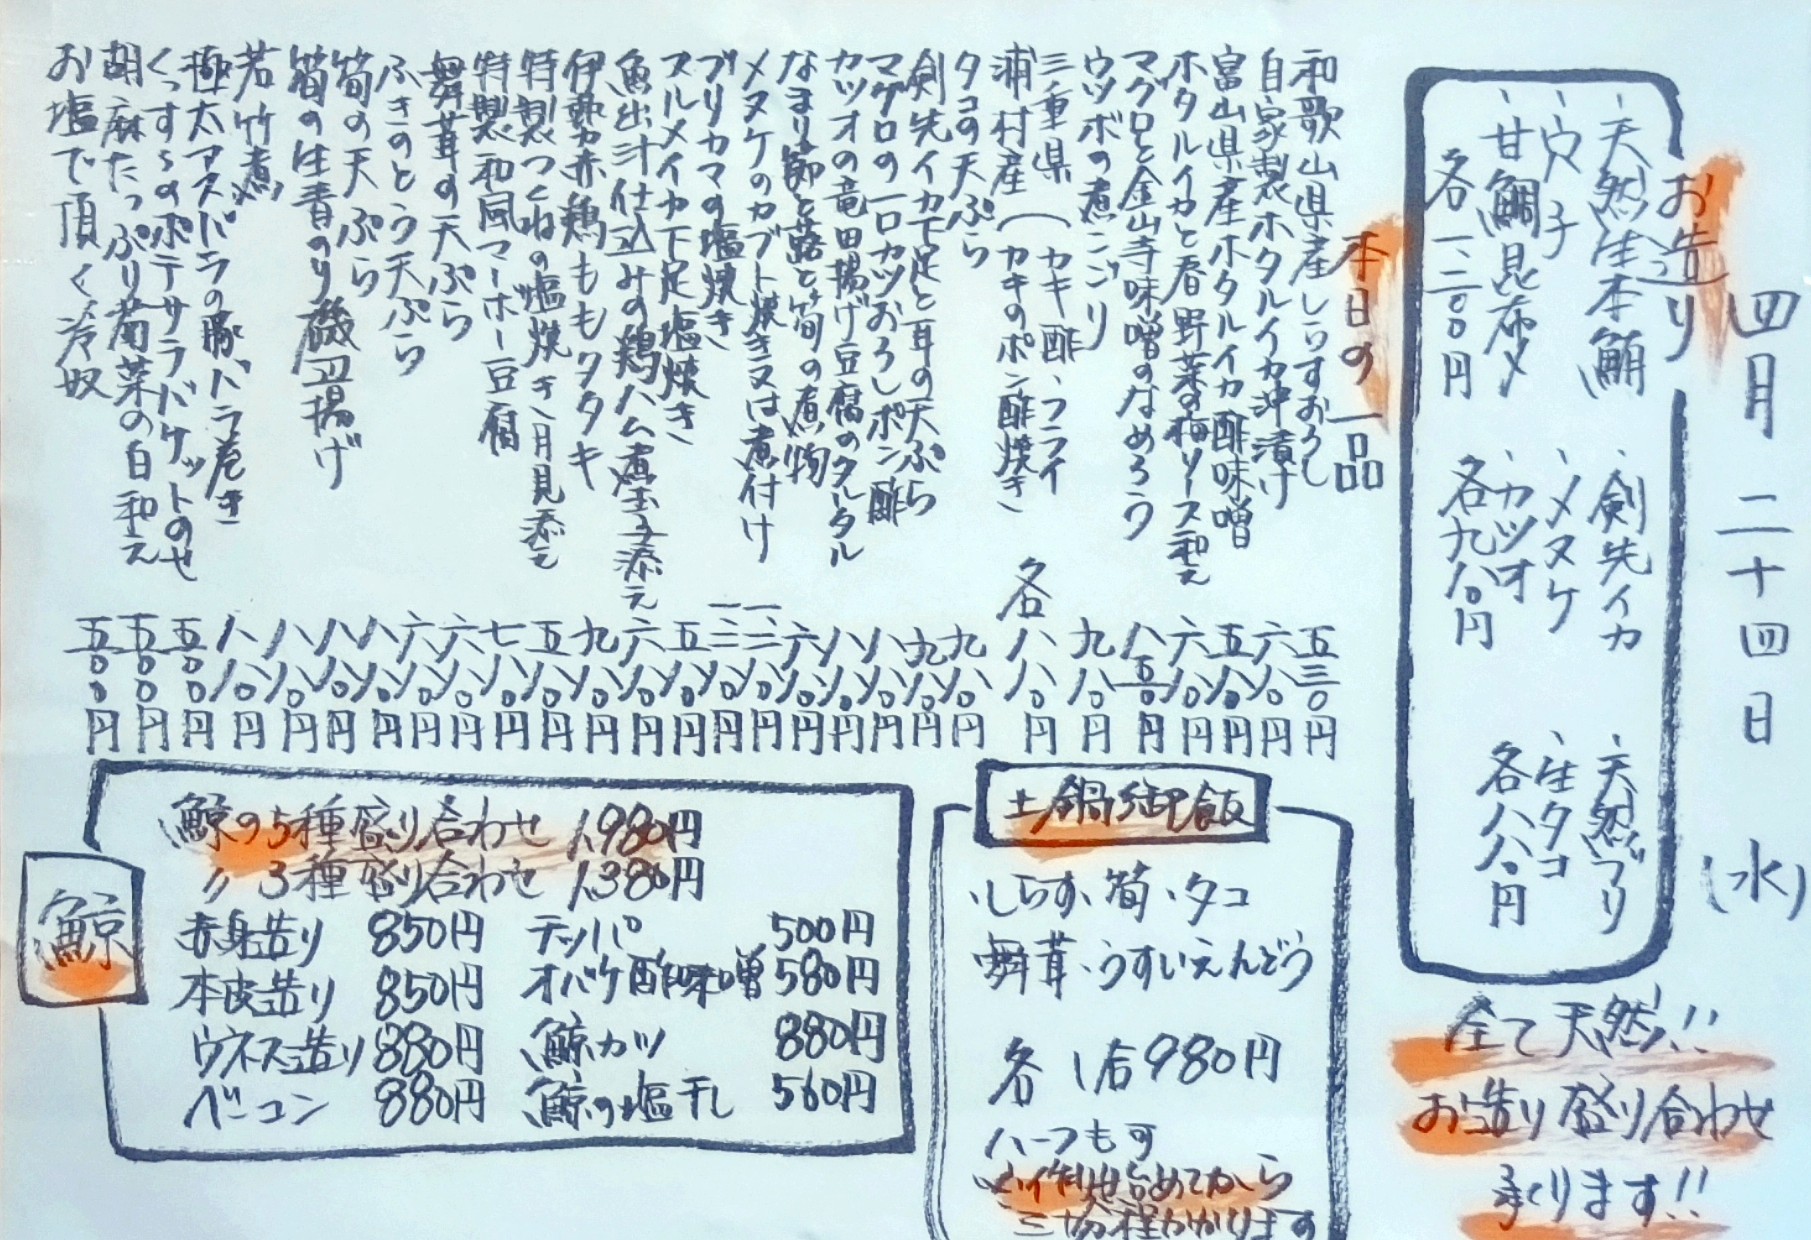 四月二十四日(水)
お造り
、天然生本鮪
、穴子
、甘鯛昆布〆
各一、二〇〇円
、剣先イカ
、メヌケ
、カツオ
各九八〇円
、天然ブリ
、生タコ
各八八〇円
全て天然!!
お造り盛り合わせ
承ります!!
本日の一品
和歌山県産しらすおろし 五三〇円
自家製ホタルイカ沖漬け 六八〇円
富山県産ホタルイカ酢味噌 五八〇円
ホタルイカと春野菜の梅ソース和え 六八〇円
マグロと金山寺味噌のなめろう 八五〇円
ウツボの煮こごり 九八〇円
三重県(カキ酢、フライ
浦村産(カキのポン酢焼き 各八八〇円
タコの天ぷら 九八〇円
剣先イカ下足と耳の天ぷら 九八〇円
マグロの一口カツおろしポン酢 八八〇円
カツオの竜田揚げ豆腐のタルタル 八八〇円
なまり節と蕗と筍の煮物 六八〇円
メヌケのカブト焼き又は煮付け 一、二八〇円
ブリカマの塩焼き 一、二八〇円
スルメイカ下足塩焼き 五八〇円
魚出汁仕込みの鶏ハム煮玉子添え 六八〇円
伊勢赤鶏ももタタキ 九八〇円
特製つくねの塩焼き、月見添え 五八〇円
特製和風マーボー豆腐 七八〇円
舞茸の天ぷら 六八〇円
ふきのとう天ぷら 六八〇円
筍の天ぷら 八八〇円
筍の生青のり磯辺揚げ 八八〇円
若竹煮 八八〇円
極太アスパラの豚バラ巻き 八八〇円
くっすぅのポテサラバケットのせ 五〇〇円
胡麻たっぷり菊菜の白和え 五〇〇円
お塩で頂く冷奴 五〇〇円
土鍋御飯
、しらす、筍、タコ
舞茸、うすいえんどう
各1合980円
ハーフも可
三十分程かかります
鯨
鯨の5種盛り合わせ 1,980円
〃 3種盛り合わせ 1,380円
赤身造り 850円
本皮造り 850円
ウネス造り 880円
ベーコン 880円
テッパ 500円
オバケ酢味噌 580円
鯨カツ 880円
鯨の塩干し 560円